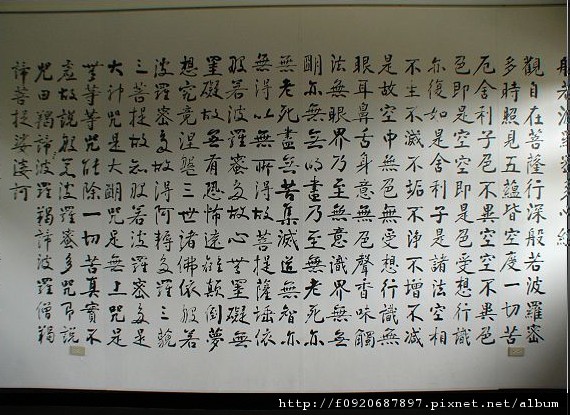 般若波羅密多心經
觀自在菩薩行深般若波羅密
多時照見五蘊皆空度一切苦
厄舍利子色不異空空不異色
色即是空空即是色受想行識
亦復如是舍利子是諸法空相
不生不滅不垢不淨不增不減
是故空中無色無受想行識無
眼耳鼻舌身意無色聲香味觸
法無眼界乃至無意識界無無
明亦無無明盡乃至無老死亦
無老死盡無苦集滅道無智亦
無得以無所得故菩提薩埵依
般若波羅密多故心無罣礙無
罣礙故無有恐怖遠離顛倒夢
想究竟涅槃三世諸佛依般若
波羅密多故得阿耨多羅三藐
三菩提故知般若波羅密多是
大神咒是大明咒是無上咒是
無等等咒能除一切苦真實不
虛故說般若波羅密多咒即說
咒曰羯諦波羅羯諦波羅僧羯
諦菩提娑婆訶
http://f0920687897.pixnet.net/album